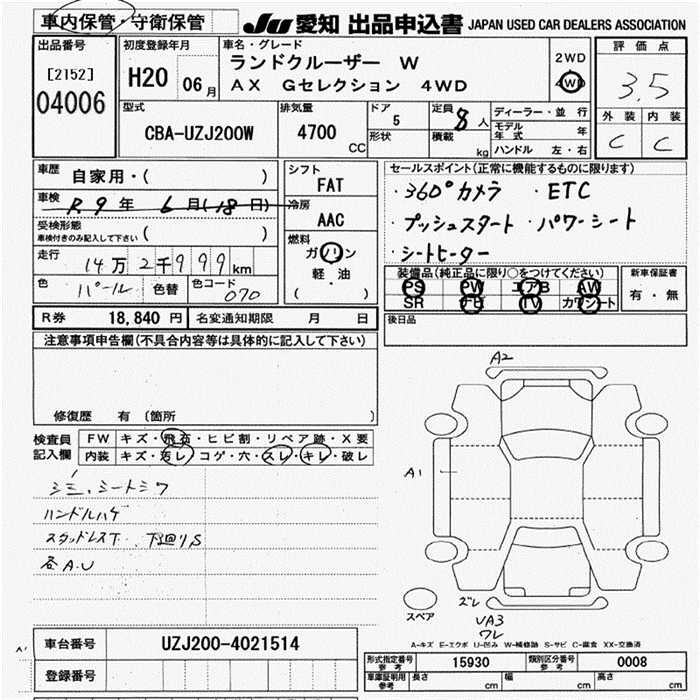 車内保管・守衛保管
JU 愛知 出品申込書 JAPAN USED CAR DEALERS ASSOCIATION
出品番号
[2152]
04006
初度登録年月
H20 06月
車名・グレード
ランドクルーザー W
AX Gセレクション 4WD
2WD
4WD
評価点
3.5
外装 内装
C C
型式
CBA-UZJ200W
排気量
4700
CC
ドア
5
形状
定員
8人
積載
kg
ディーラー・並行
モデル年式 年
ハンドル 左・右
車歴
自家用・( )
車検
R9年 6月(18日)
受検形態
車検付きのみ記入して下さい ( )
走行
14万2千999km
色
パール
色替
色コード
070
シフト
FAT
冷房
AAC
燃料
ガソリン
軽・油
( )
セールスポイント(正常に機能するものに限ります)
・360°カメラ ・ETC
・プッシュスタート ・パワーシート
・シートヒーター
装備品(純正品に限り○をつけてください)
PS PW エアB AW
SR ナビ TV カワシート
新車保証書
有・無
R券 18,840円
名変通知期限 月 日
後日品
注意事項申告欄(不具合内容等は具体的に記入して下さい)
修復歴 有 〔箇所 〕
検査員記入欄
FW キズ・飛石・ヒビ割・リペア跡・X要
内装 キズ・汚レ・コゲ・穴・スレ・キレ・破レ
シミ、シートシワ
ハンドルハゲ
スタッドレスT 下廻りS
各A.U
A2
A1
スペア
ズレ
UA3
ワレ
A-キズ E-エクボ U-凹み W-補修跡 S-サビ C-腐食 XX-交換済
A1
車台番号
UZJ200-4021514
登録番号
形式指定番号
参考
15930
類別区分番号
参考
0008
車庫証明用
参考
長さ cm
幅 cm
高さ cm